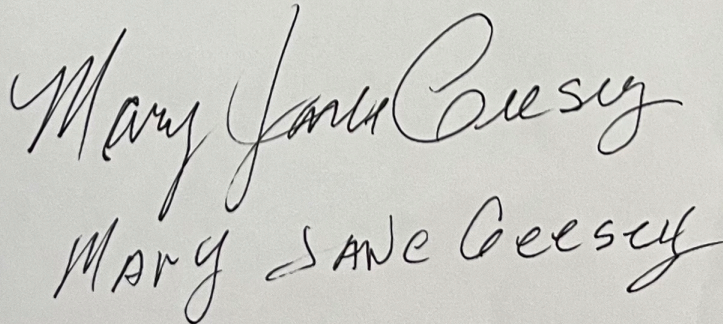 Mary Jane Geesey
MARY JANE Geesey